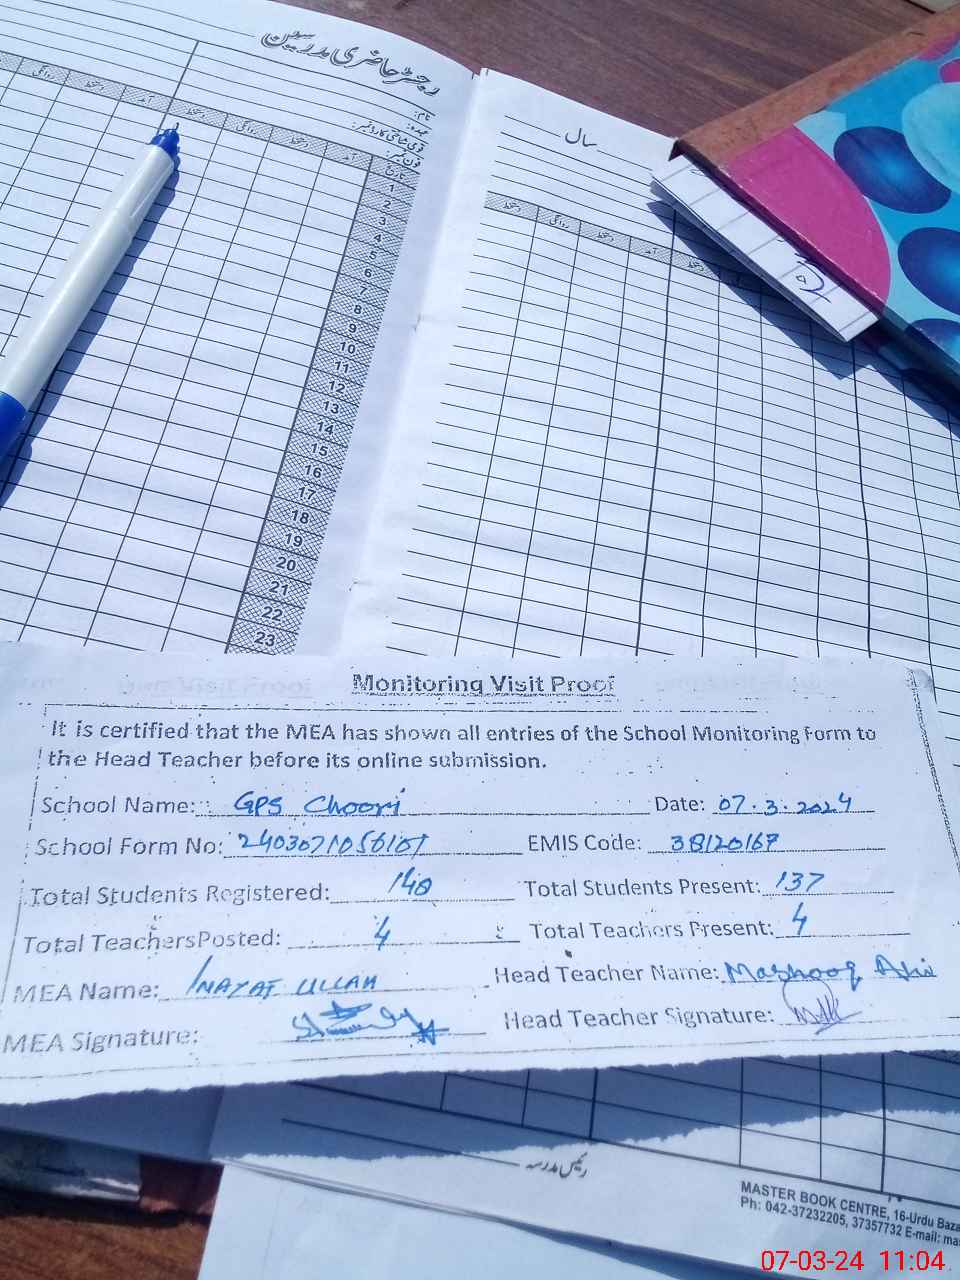 رجسٹر حاضری مدرسین
نام:
عہدہ:
قومی شناختی کارڈ نمبر:
فون نمبر:
تاریخ آمد دستخط روانگی دستخط آمد دستخط روانگی
1
2
3
4
5
6
7
8
9
10
11
12
13
14
15
16
17
18
19
20
21
22
23
سال
دستخط آمد دستخط روانگی دستخط
Monitoring Visit Proof
It is certified that the MEA has shown all entries of the School Monitoring Form to
the Head Teacher before its online submission.
School Name: GPS Choori Date: 07.3.2024
School Form No: EMIS Code: 38120167
Total Students Registered: 140 Total Students Present: 137
Total TeachersPosted: 4 Total Teachers Present: 4
MEA Name: INAYAT ULLAH Head Teacher Name: Mashooq
MEA Signature: Head Teacher Signature:
رئیس مدرسہ
MASTER BOOK CENTRE, 16-Urdu Baza
Ph: 042-37232205, 37357732 E-mail: mas
07-03-24 11:04